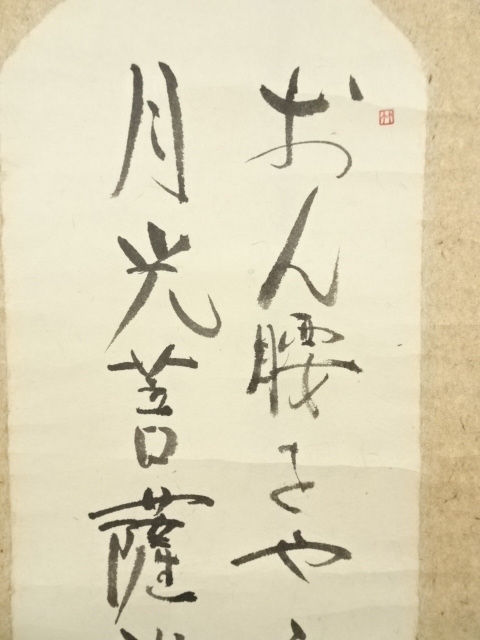 おん腰をや
月光菩薩